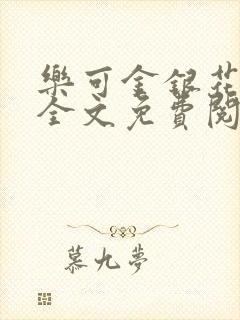 樂可金銀花
全文免費閱
慕九夢